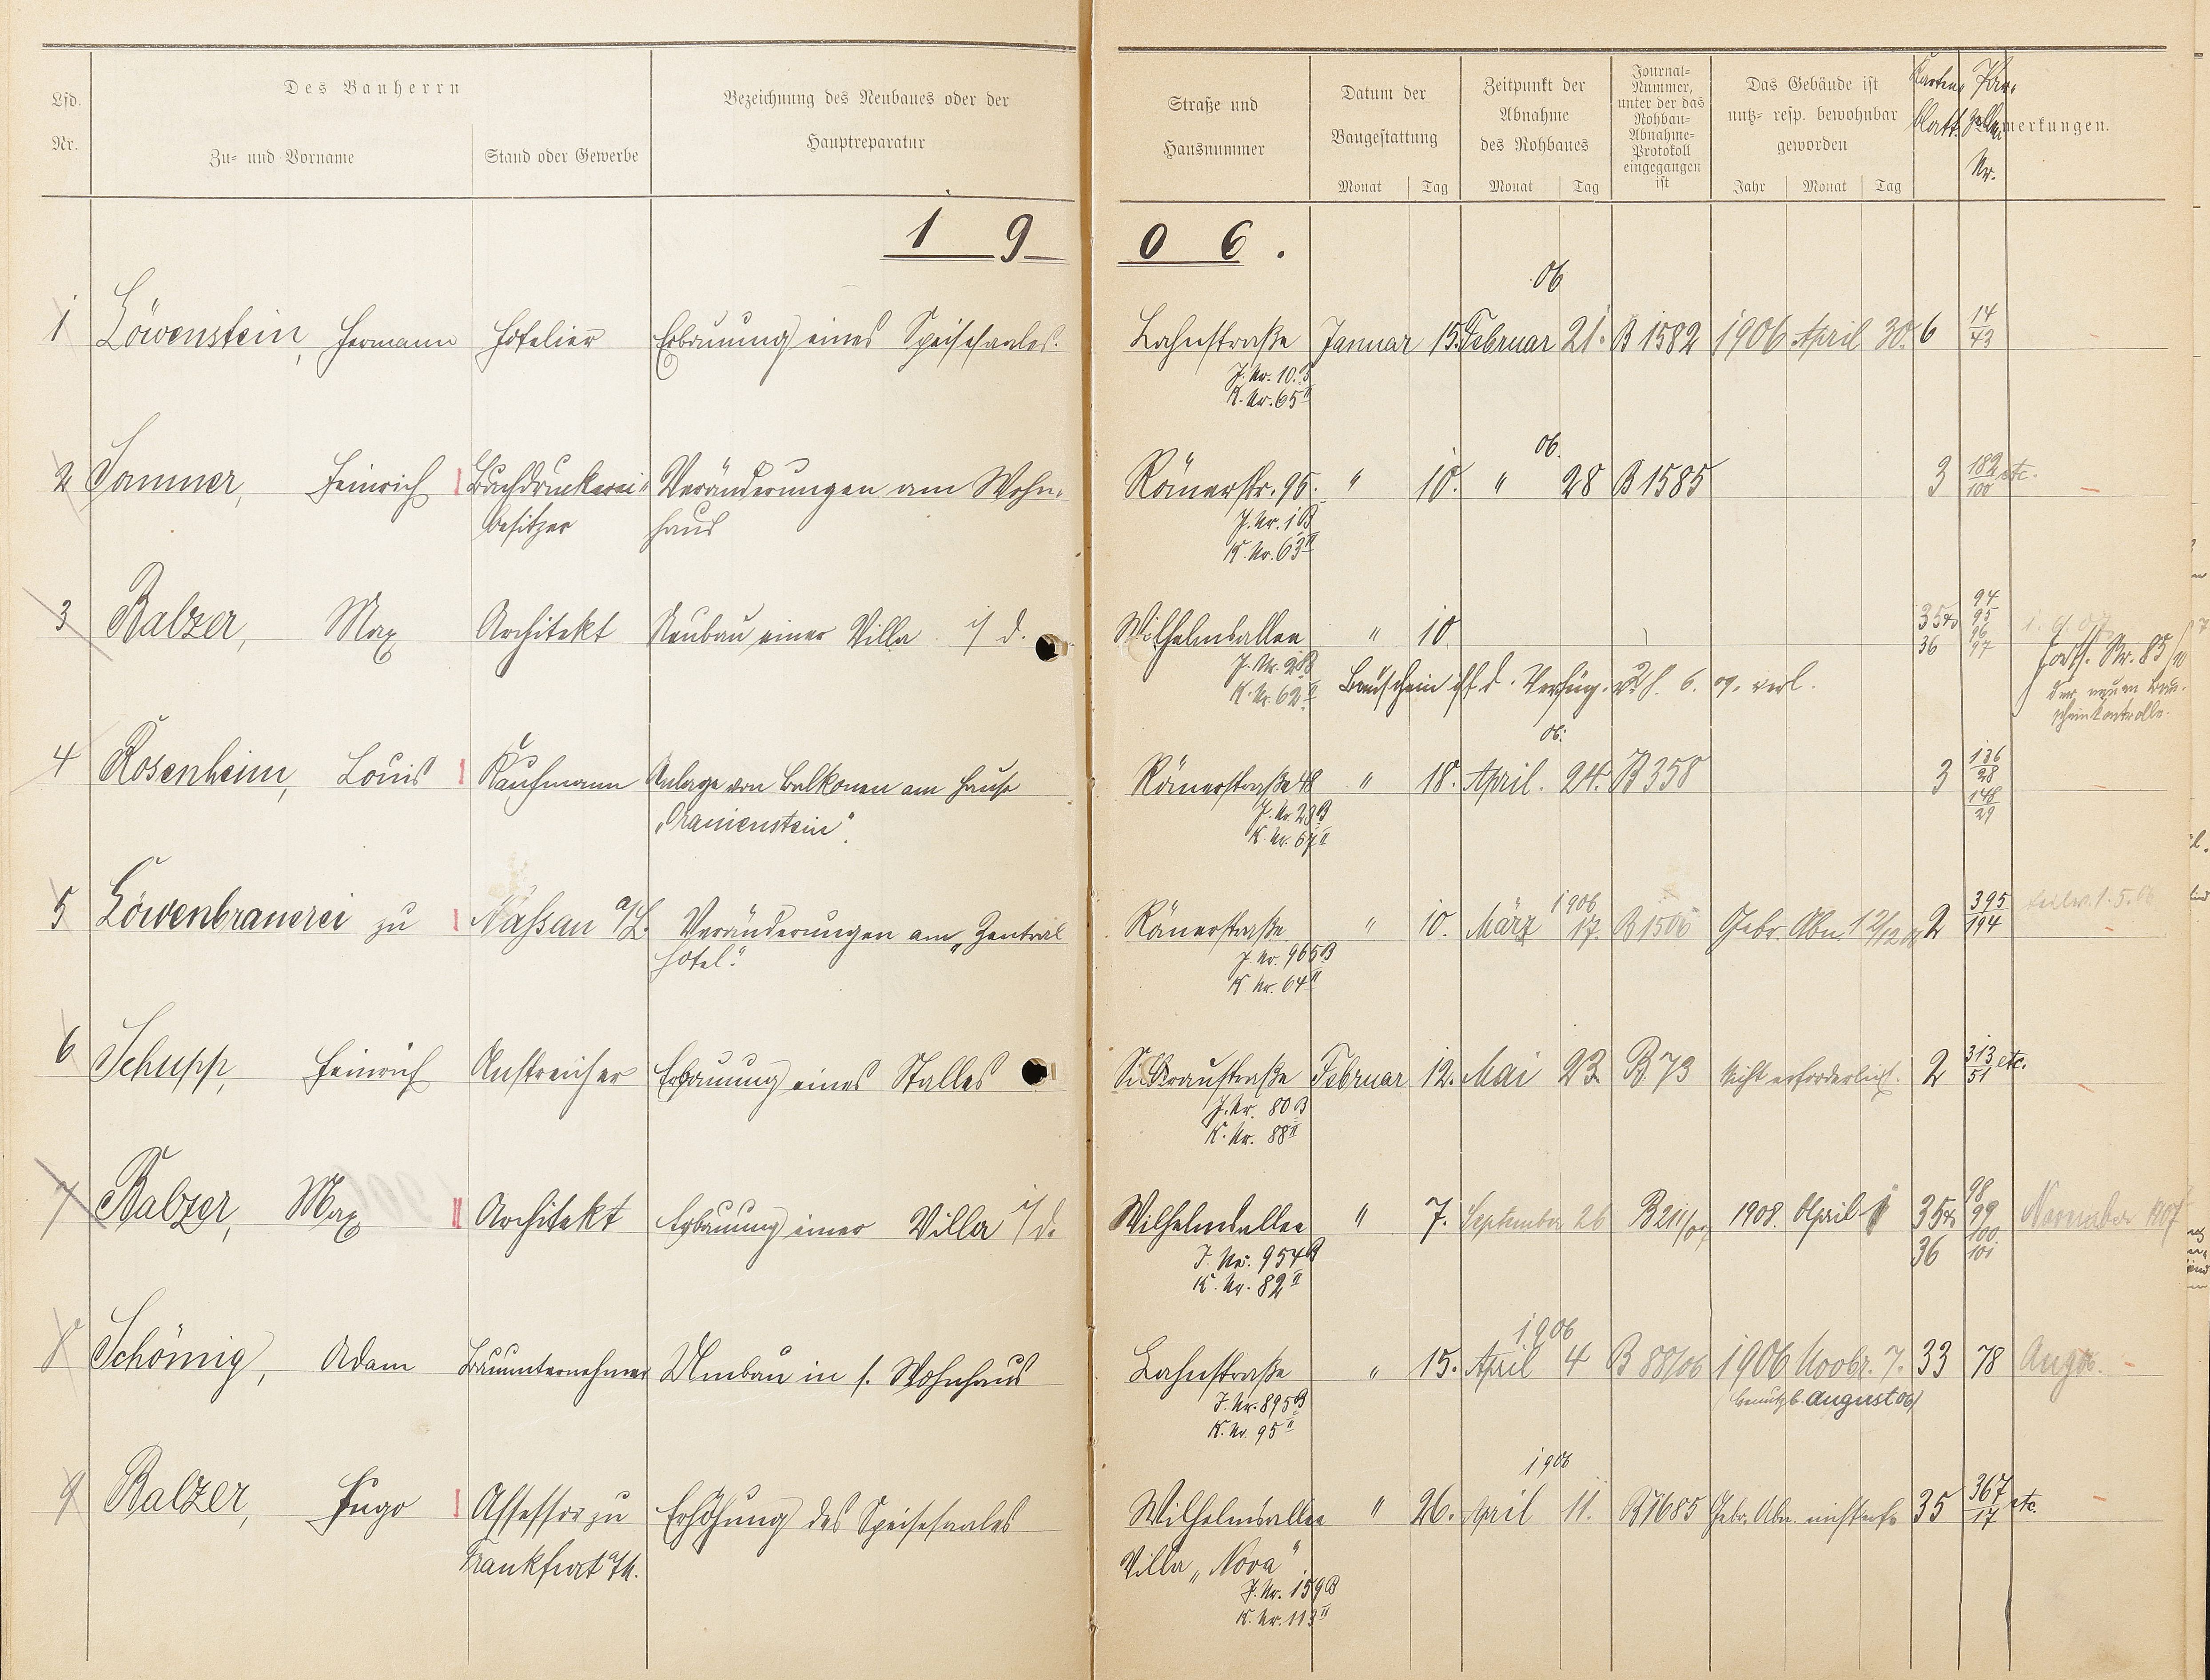 Lfd. Nr.
Des Bauherrn
Zu- und Vorname
Stand oder Gewerbe
Bezeichnung des Neubaues oder der Hauptreparatur
Straße und Hausnummer
Datum der Baugestattung
Monat Tag
Zeitpunkt der Abnahme des Rohbaues
Monat Tag
Journal-Nummer, unter der das Rohbau-Abnahme-Protokoll eingegangen ist
Das Gebäude ist nutz- resp. bewohnbar geworden
Jahr Monat Tag
Karten-blatt.
Par-zellen Nr.
merkungen.
1 9 0 6 .
06
1 Löwenstein, Hermann Hotelier Erbauung eines Speisesaales. Lahnstraße Januar 15. Februar 21. B 1582 1906 April 30. 6 14/43
J. Nr. 10. B
K. Nr. 65 II
06.
2 Sommer, Heinrich Buchdruckerei- Veränderungen am Wohn- Römerstr. 95. " 10. " 28 B 1585 3 182/100 etc.
besitzer haus
J. Nr. 1 B
K. Nr. 63 II
3 Balzer, Max Architekt Neubau einer Villa i/ d. Wilhelmsallee " 10 35 & 36 94 95 96 97
J. Nr. 2 B
K. Nr. 62 II
Bauschein ist d. Verfüg. v. 6. 09. verl.
Forts. Nr. 85/10
der neuen Bau-
scheinkontrolle.
06.
4 Rosenheim, Louis Kaufmann Anlage von Balkonen am Hause Römerstraße 48 " 18. April. 24. B 358 3 136/28 148/29
„Oranienstein".
J. Nr. 28 B
K. Nr. 67 II
1906
5 Löwenbrauerei zu Nassau a/L. Veränderungen am „Zentral Römerstraße " 10. März 17. B 1506 Gebr. Abn. 12/12 06 2 395/194
Hotel."
J. Nr. 965 B
K. Nr. 64 II
6 Schupp, Heinrich Anstreicher Erbauung eines Stalles Silberaustraße Februar 12. Mai 23. B. 73 Nicht erforderlich. 2 313/51 etc.
J. Nr. 80 B
K. Nr. 88 II
7 Balzer, Max Architekt Erbauung einer Villa i/ d. Wilhelmsallee " 7. September 26 B 211/07 1908. April 1 35 & 36 98 99 100 101 November 1907
J. Nr. 954 B
K. Nr. 82 II
1906
8 Schömig, Adam Bauunternehmer Umbau in s. Wohnhaus Lahnstraße " 15. April 4 B 88/06 1906 Novbr. 7. 33 78 Aug 06.
(benutzb. August 06)
J. Nr. 895 B
K. Nr. 95 II
1906
9 Balzer, Hugo Assessor zu Erhöhung des Speisesaales Wilhelmsallee " 26. April 11. B 1685 Gebr. Abn. nicht erf. 35 367/17 etc.
Frankfurt a/M.
Villa „Nova"
J. Nr. 159 B
K. Nr. 113 II